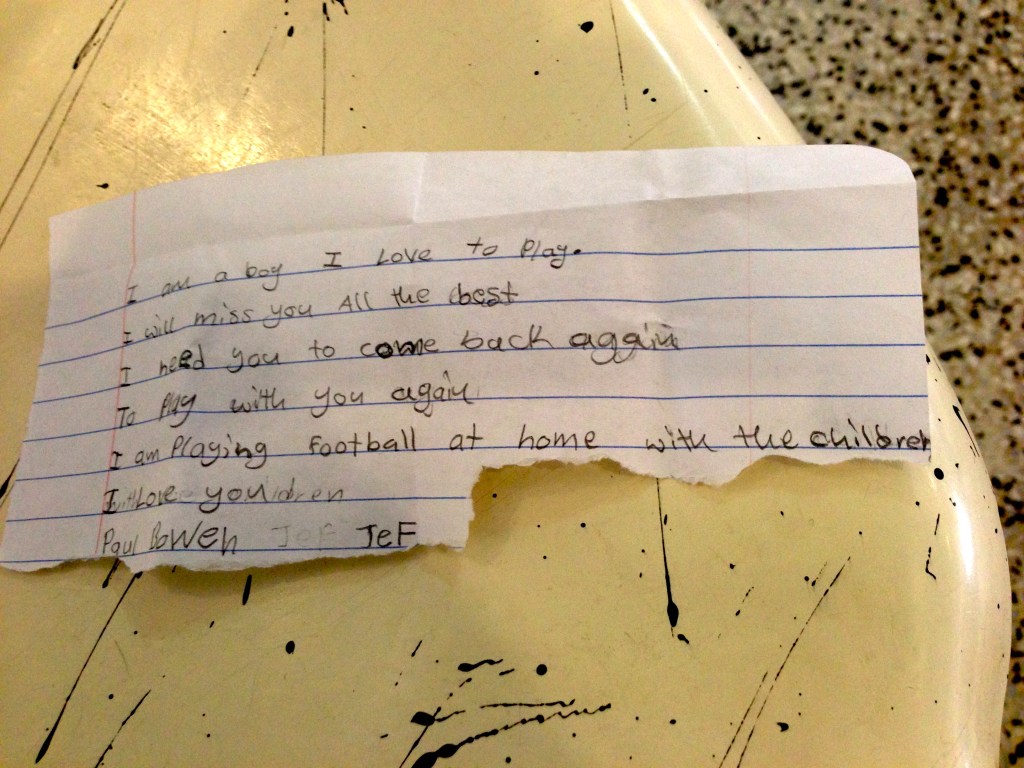 I am a boy I Love to Play.
I will miss you All the best
I need you to come back aggain
To Play with you again
I am Playing Football at home with the children
I Love you
Paul Bowen JeF JeF